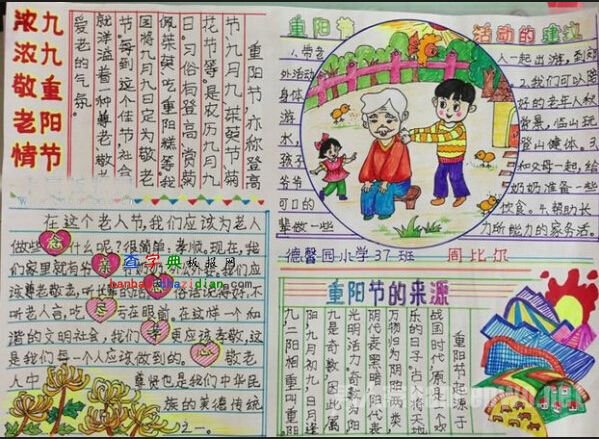 九九重阳节
浓浓敬老情
重阳节,亦称登高
节、九月九、茱萸节、菊
花节等。是农历九月九
日。习俗有登高、赏菊、
佩茱萸、吃重阳糕等。我
国将九月九日定为敬老
节。每到这个佳节,社会
就洋溢着一种尊老敬老
爱老的气氛。
重阳节 活动的建议
1.带老人一起出游,到郊
外活动 2.我们可以陪
身体好的老年人秋
游赏景,临山玩
水,登山健体。3.
孩子和父母一起,给
爷爷奶奶准备一些
可口的饮食。4.帮助长
辈做一些力所能力的家务活。
在这个老人节,我们应该为老人
做些什么呢?很简单:孝顺。现在,我
们家里就有
我们应
该尊老敬老,听长辈的话。俗话说得好,不
听老人言,吃亏在眼前。在这样一个和
谐的文明社会,我们更应该孝敬,这
是我们每一个人应该做到的。敬老
人中 尊贤也是我们中华民
族的美德传统
之一。
查字典板报网
德馨园小学37班 周比尔
重阳节的来源
重阳节起源于
战国时代,原是一个欢
乐的日子。古人将天地
万物归为阴阳两类,
阴代表黑暗,阳代表
光明、活力。奇数为阳
九是奇数,因此属
阳,九月初九,日月逢
九,二阳相重,叫重阳